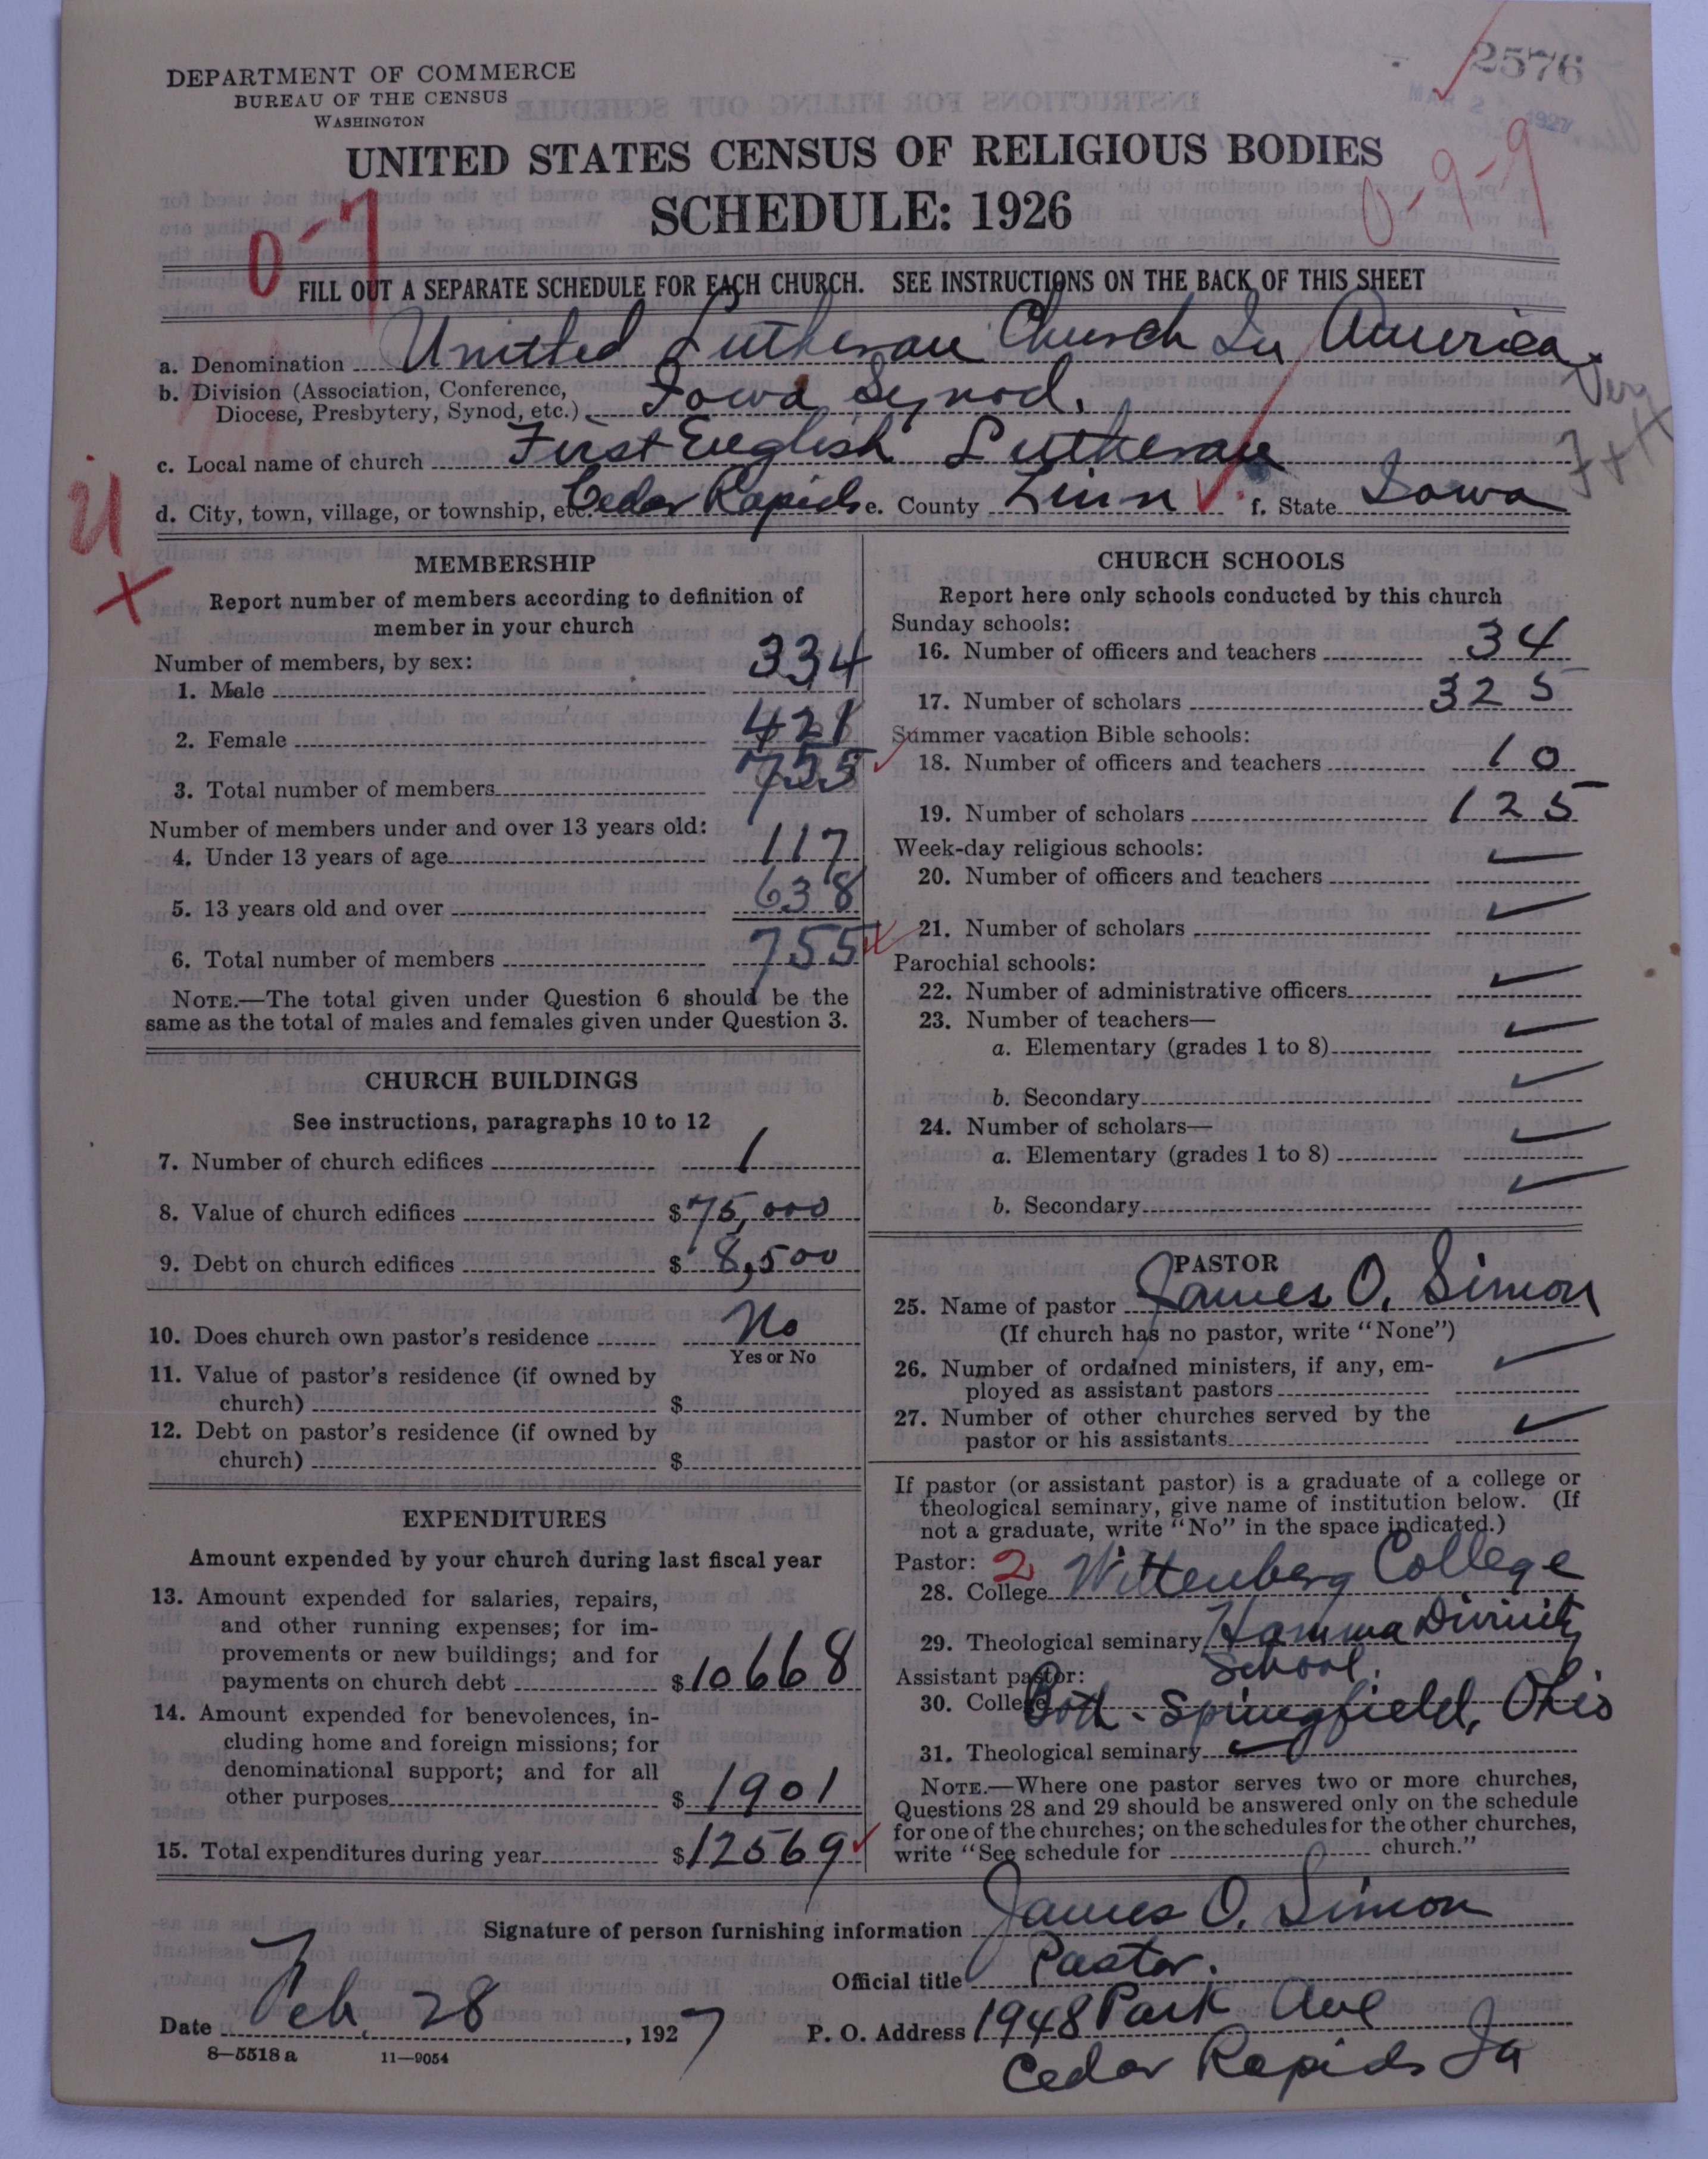 2576
MAR 2 1927
DEPARTMENT OF COMMERCE
BUREAU OF THE CENSUS
WASHINGTON
UNITED STATES CENSUS OF RELIGIOUS BODIES
SCHEDULE: 1926
0-7
0-9-9
FILL OUT A SEPARATE SCHEDULE FOR EACH CHURCH. SEE INSTRUCTIONS ON THE BACK OF THIS SHEET
a. Denomination United Lutheran Church In America
b. Division (Association, Conference,
Diocese, Presbytery, Synod, etc.) Iowa Synod.
c. Local name of church First English Lutheran
d. City, town, village, or township, etc. Cedar Rapids e. County Linn f. State Iowa
MEMBERSHIP
Report number of members according to definition of
member in your church
Number of members, by sex:
1. Male 334
2. Female 421
3. Total number of members 755
Number of members under and over 13 years old:
4. Under 13 years of age 117
5. 13 years old and over 638
6. Total number of members 755
NOTE.—The total given under Question 6 should be the
same as the total of males and females given under Question 3.
CHURCH BUILDINGS
See instructions, paragraphs 10 to 12
7. Number of church edifices 1
8. Value of church edifices $75,000
9. Debt on church edifices $8,500
10. Does church own pastor's residence No
Yes or No
11. Value of pastor's residence (if owned by
church) $
12. Debt on pastor's residence (if owned by
church) $
EXPENDITURES
Amount expended by your church during last fiscal year
13. Amount expended for salaries, repairs,
and other running expenses; for im-
provements or new buildings; and for
payments on church debt $10668
14. Amount expended for benevolences, in-
cluding home and foreign missions; for
denominational support; and for all
other purposes $1901
15. Total expenditures during year $12569
CHURCH SCHOOLS
Report here only schools conducted by this church
Sunday schools:
16. Number of officers and teachers 34
17. Number of scholars 325
Summer vacation Bible schools:
18. Number of officers and teachers 10
19. Number of scholars 125
Week-day religious schools:
20. Number of officers and teachers
21. Number of scholars
Parochial schools:
22. Number of administrative officers
23. Number of teachers—
a. Elementary (grades 1 to 8)
b. Secondary
24. Number of scholars—
a. Elementary (grades 1 to 8)
b. Secondary
PASTOR
25. Name of pastor James O. Simon
(If church has no pastor, write "None")
26. Number of ordained ministers, if any, em-
ployed as assistant pastors
27. Number of other churches served by the
pastor or his assistants
If pastor (or assistant pastor) is a graduate of a college or
theological seminary, give name of institution below. (If
not a graduate, write "No" in the space indicated.)
Pastor: 2
28. College Wittenberg College
29. Theological seminary Hamma Divinity
School.
Assistant pastor:
30. College Both - Springfield, Ohio
31. Theological seminary
NOTE.—Where one pastor serves two or more churches,
Questions 28 and 29 should be answered only on the schedule
for one of the churches; on the schedules for the other churches,
write "See schedule for church."
Signature of person furnishing information James O. Simon
Official title Pastor.
Date Feb. 28, 1927
P. O. Address 1948 Park Ave
Cedar Rapids Ia
8-5518a 11-9054